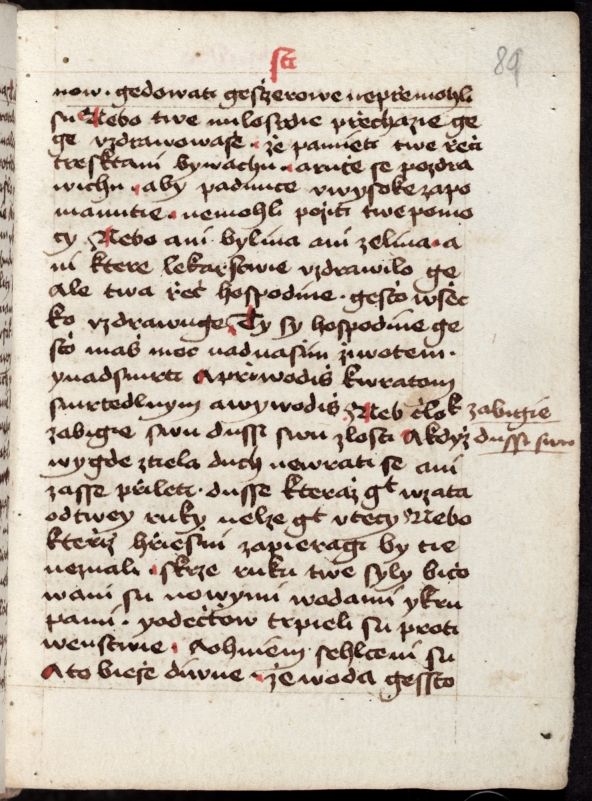 89
now · gedowati gesstzerowe nepřemohli
su Nebo twe milosrdie přichazie ge
ge vzdrawowasse · že pamieti twe řeči
tresktani bywachu · a ruče se pozdra
wichu · aby padnuce vwysokezapo
manutie · nemohli požiti twe pomo
cy Nebo ani bylina ani zelina · a
ni ktere lekarstwie vzdrawilo ge
Ale twa řeč hospodine · gesto wšec
ko vzdrawuge Ty sy hospodine ge
sto maš moc nad nasim žiwotem ·
ynadsmrti A přiwodiš kwratom
smrtedlnym awywodiš Neb člok zabigie
zabigie swu dussi swu zlosti Akdyž dussi swu
wygde ztiela duch newrati se ani
zasse přileti · dusse kteraž gt wzata
odtwey ruky nelze gt vtecy Nebo
kteřiž hřiesni zapieragi by tie
neznali · skrze ruku twe syly bičo
wani su nowymi wodami ykru
pami · ydešťow trpieli su proti
wenstwie · Aohniem sehlceni su
Ato bieše diwne · že woda gessto